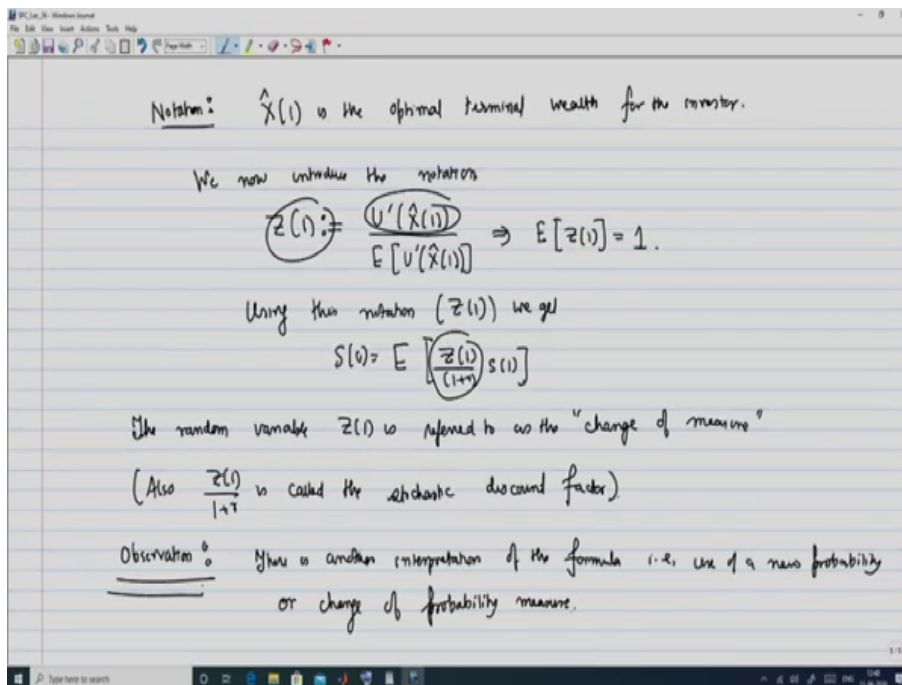 SPC_Lec_36 - Windows Journal
File Edit View Insert Actions Tools Help
Page Width
Notation: X̂(1) is the optimal terminal wealth for the investor.
We now introduce the notation
Z(1) := U'(X̂(1)) / E[U'(X̂(1))] ⇒ E[Z(1)] = 1.
Using this notation (Z(1)) we get
S(0) = E [ Z(1)/(1+r) S(1) ]
The random variable Z(1) is referred to as the "change of measure"
(Also Z(1)/1+r is called the stochastic discount factor).
Observation: There is another interpretation of the formula i.e, use of a new probability
or change of probability measure.
Type here to search
ENG